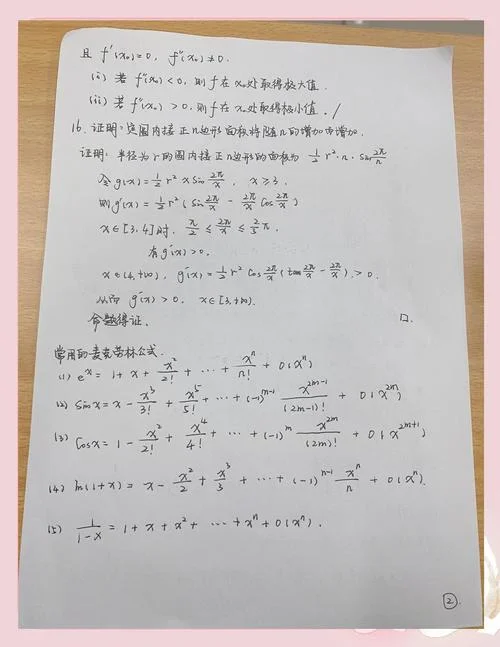 且 f'(x₀)=0, f''(x₀)≠0.
(i) 若 f''(x₀)<0, 则 f 在 x₀ 处取得极大值.
(ii) 若 f''(x₀)>0, 则 f 在 x₀ 处取得极小值. /
16. 证明: 圆内接正 n 边形面积将随 n 的增加而增加.
证明: 半径为 r 的圆内接正 n 边形的面积为 1/2 r²·n·sin 2π/n
令 g(x)=1/2 r² x sin 2π/x, x≥3.
则 g'(x)=1/2 r² (sin 2π/x - 2π/x cos 2π/x)
x∈[3,4] 时, π/2 ≤ 2π/x ≤ 2/3 π.
有 g'(x)>0.
x∈(4,+∞), g'(x)=1/2 r² cos 2π/x (tan 2π/x - 2π/x)>0.
从而 g'(x)>0, x∈[3,+∞).
命题得证. □.
常用的麦克劳林公式.
(1) eˣ=1+x+x²/2!+…+xⁿ/n!+o(xⁿ)
(2) sinx=x-x³/3!+x⁵/5!+…+(-1)ᵐ⁻¹ x²ᵐ⁻¹/(2m-1)!+o(x²ᵐ)
(3) cosx=1-x²/2!+x⁴/4!+…+(-1)ᵐ x²ᵐ/(2m)!+o(x²ᵐ⁺¹)
(4) ln(1+x)=x-x²/2+x³/3+…+(-1)ⁿ⁻¹ xⁿ/n+o(xⁿ).
(5) 1/(1-x)=1+x+x²+…+xⁿ+o(xⁿ).
②.